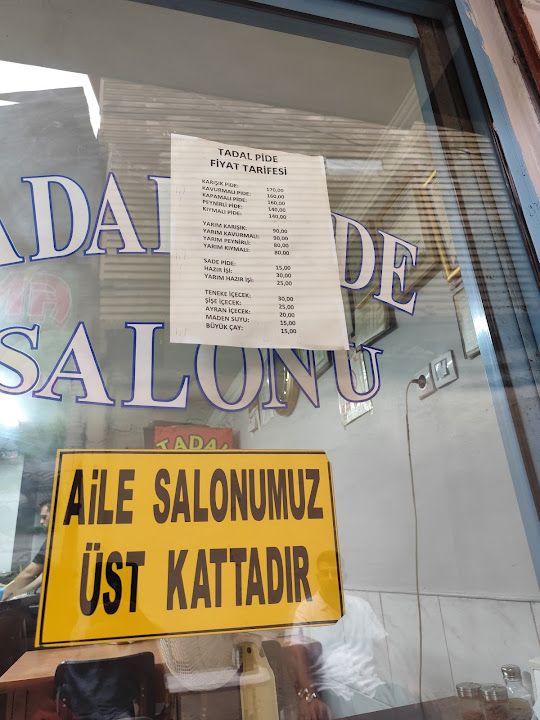 TADAL PİDE
FİYAT TARİFESİ
KARIŞIK PİDE: 170,00
KAVURMALI PİDE: 160,00
KAPAMALI PİDE: 160,00
PEYNİRLİ PİDE: 140,00
KIYMALI PİDE: 140,00
YARIM KARIŞIK: 90,00
YARIM KAVURMALI: 90,00
YARIM PEYNİRLİ: 80,00
YARIM KIYMALI: 80,00
SADE PİDE: 15,00
HAZIR İŞİ: 30,00
YARIM HAZIR İŞİ: 25,00
TENEKE İÇECEK: 30,00
ŞİŞE İÇECEK: 25,00
AYRAN İÇECEK: 20,00
MADEN SUYU: 15,00
BÜYÜK ÇAY: 15,00
ADAL DE
SALONU
TADAL
AİLE SALONUMUZ
ÜST KATTADIR